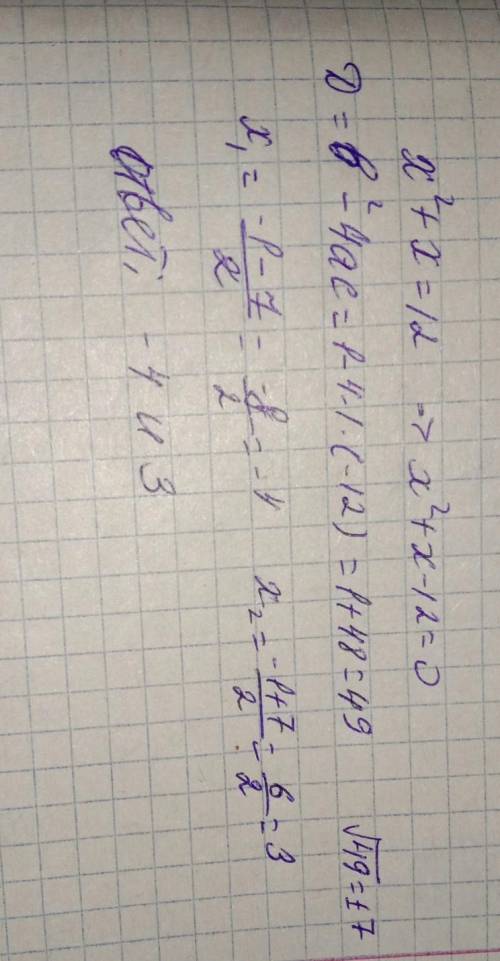 x² + x = 12 ⇒ x² + x - 12 = 0
D = b² - 4ac = 1 - 4·1·(-12) = 1 + 48 = 49 √49 = ±7
x₁ = (-1 - 7)/2 = -8/2 = -4 x₂ = (-1 + 7)/2 = 6/2 = 3
Ответ: -4 и 3